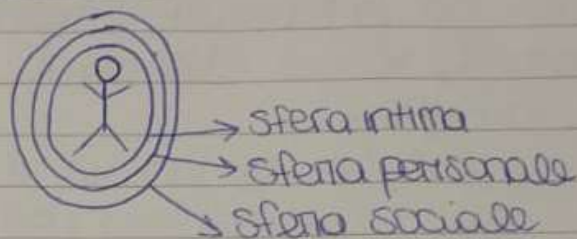 sfera intima
sfera personale
sfera sociale